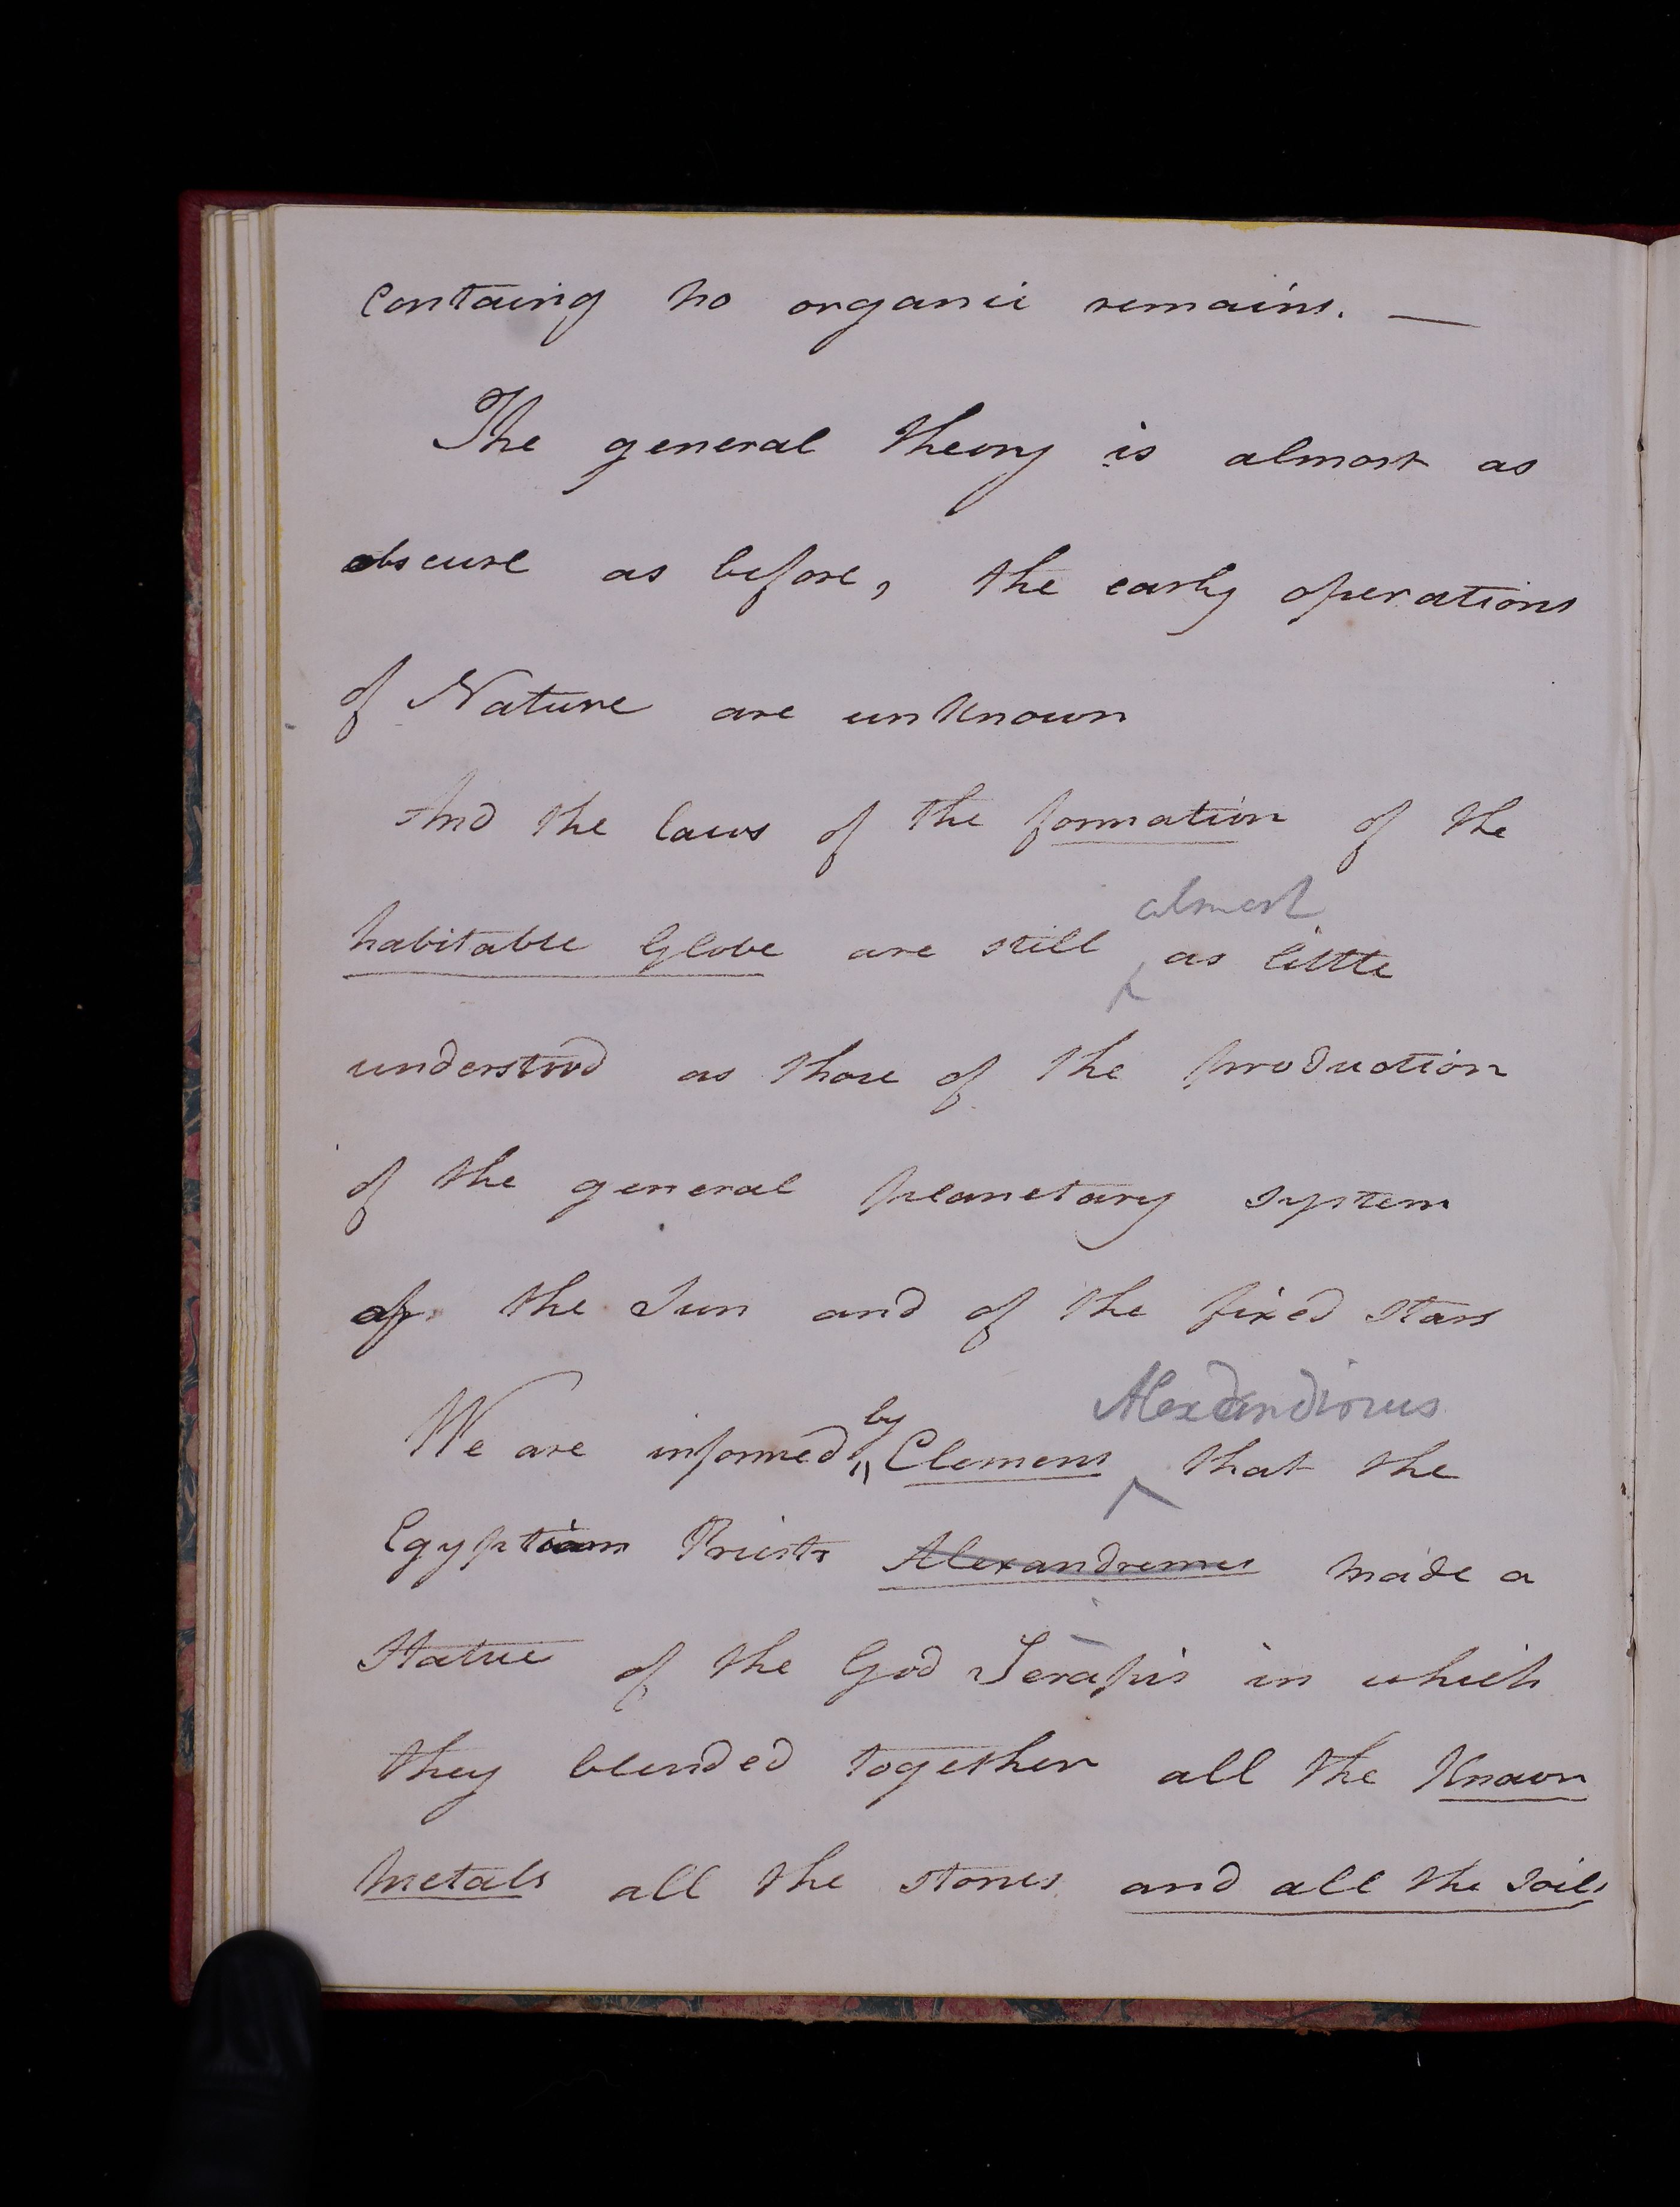 Containg no organic remains. —
The general theory is almost as
obscure as before, the early operations
of Nature are unknown
And the laws of the formation of the
almost
habitable Globe are still as little
understood as those of the production
of the general planetary system
of the Sun and of the fixed stars
by Alexandrinus
We are informed Clemens that the
Egyptian Priests Alexandrenus made a
Statue of the God Serapis in which
they blended together all the Known
Metals all the stones and all the soils